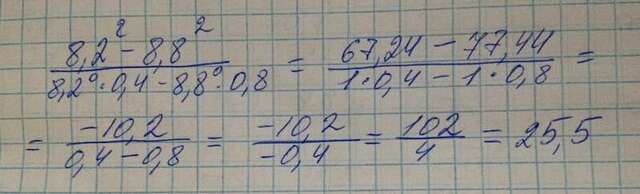 (8,2² - 8,8²)/(8,2⁰·0,4 - 8,8⁰·0,8) = (67,24 - 77,44)/(1·0,4 - 1·0,8) =
= (-10,2)/(0,4 - 0,8) = (-10,2)/(-0,4) = 102/4 = 25,5